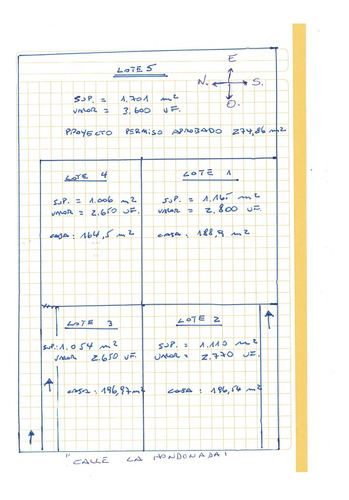 LOTE 5
E
N. S.
O.
SUP. = 1.701 m2
VALOR = 3.600 UF.
PROYECTO PERMISO APROBADO 274,86 m2
LOTE 4
SUP. = 1.006 m2
VALOR = 2.650 UF.
CASA: 164,5 m2
LOTE 1
SUP. = 1.165 m2
VALOR = 2.800 UF.
CASA: 188,9 m2
LOTE 3
SUP: 1.054 m2
VALOR 2.650 UF.
CASA: 196,97 m2
LOTE 2
SUP. = 1.110 m2
VALOR = 2.770 UF.
CASA: 196,54 m2
"CALLE LA HONDONADA"